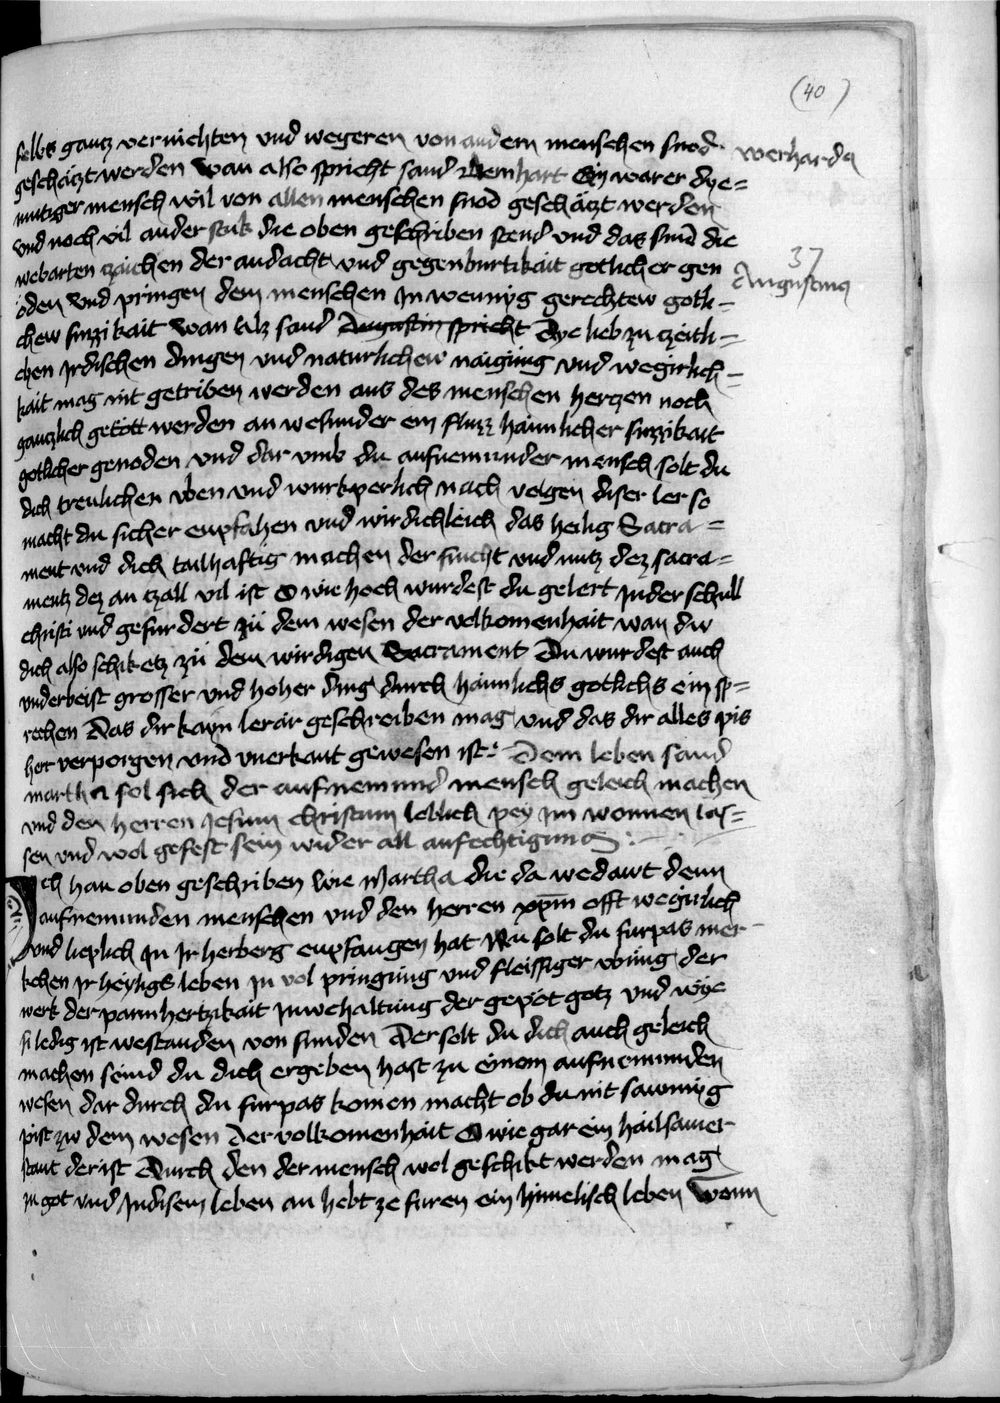 (40)
selbs gantz vernichten vnd wegeren von andern menschen snod
wernhardus
geschätzt werden wan also spricht sand Bernhart Ein warer dye=
mutiger mensch wil von allen menschen snod geschätzt werden
vnd noch vil ander stuk die oben geschriben stend vnd das sind die
webarten zaichen der andacht vnd gegenburtikait gotlicher gen
37
Augustinus
oden vnd pringen dem menschen In wennyg gerechtew gotli=
chew suzzikait wan alz sand Augustin spricht Dye lieb zu zeitli=
chen Irdischen dingen vnd naturlichew naigung vnd wegirlich=
kait mag nit getriben werden aus des menschen hertzen noch
gantzlich getött werden an wesunder ein flusz haimlicher suzzikait
gotlicher genoden vnd dar vmb du aufnemunder mensch solt du
dich treulichen vben vnd wurkperlich nach volgen diser ler so
macht du sicher enpfahen vnd wirdichleich das heilig Sacra=
ment vnd dich tailhaftig machen der frucht vnd nutz dez sacra=
mentz dez an tzall vil ist O wie hoch wurdest du gelert In der schull
christi vnd gefurdert zü dem wesen der volkomenhait wan du
dich also schiketz zü dem wirdigen Sacrament Du wurdest auch
vnderbeist grosser vnd hoher ding durch haimlichs gotlichs ein sp=
rechen Das dir kayn lerär geschreiben mag vnd das dir alles pis
her verporgen vnd vnerkant gewesen ist : Dem leben sand
martha sol sich der aufnemund mensch geleich machen
vnd den herren Jesum christum leblich pey im wonnen las=
sen vnd wol gefest sein wider all anfechtigung :
Ich han oben geschriben wie Martha die da wedawt denn
aufnemunden menschen vnd den herren xpm offt wegirlich
vnd lieplich In Ir herberg enpfangen hat Nu solt du furpas mer
kchen Ir heyligs leben In vol pringung vnd fleissiger vbung der
werk der parmhertzikait Inwehaltung der gepot gotz vnd wye
si ledig ist westanden von sunden Der solt du dich auch geleich
machen seind du dich ergeben hast zu einem aufnemunden
wesen dar durch du furpas komen macht ob du nit sawmyg
pist zw dem wesen Der volkomenhait O wie gar ein hailsamer
stant der ist Durch den der mensch wol geschikt werden mag
In got vnd In disem leben an hebt ze furen ein himelisch leben wann